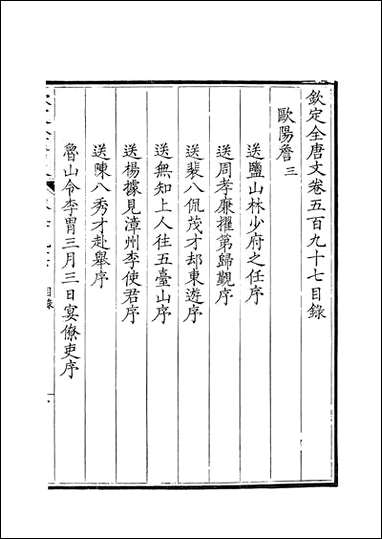 欽定全唐文卷五百九十七目錄
歐陽詹 三
送鹽山林少府之任序
送周孝廉擢第歸覲序
送裴八侃茂才却東遊序
送無知上人往五臺山序
送楊據見漳州李使君序
送陳八秀才赴舉序
魯山令李胃三月三日宴僚吏序
目錄